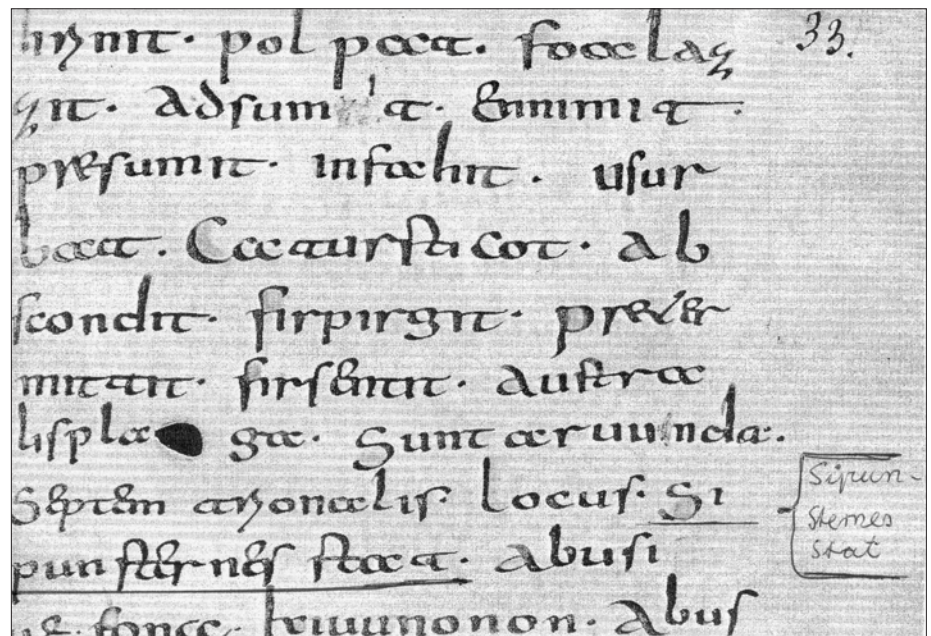 hrinit. pol pat. foalaz 33.
zit. Adsum it. ginimit.
presumit. infahit. usur
bat. Catursticot. Ab
scondit. firpirgit. preter
mittit. firsentit. Austra
lis pla ga. Sunt aruuinda.
Septem trionalis. locus. Si
pun sternes stat. Abusi
fona. kiuuonon. Abus
Sipun-
sternes
stat